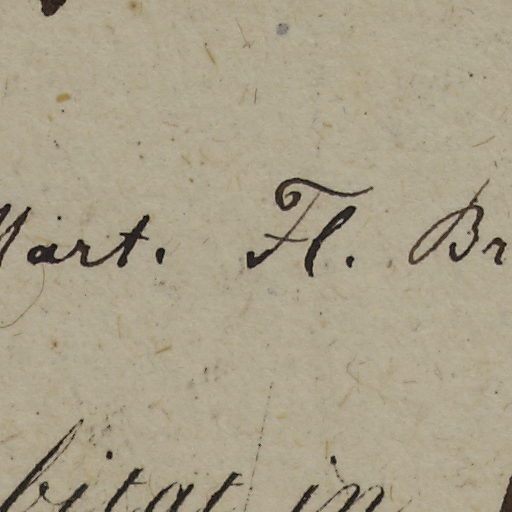 Mart. Fl. Br
bitat in